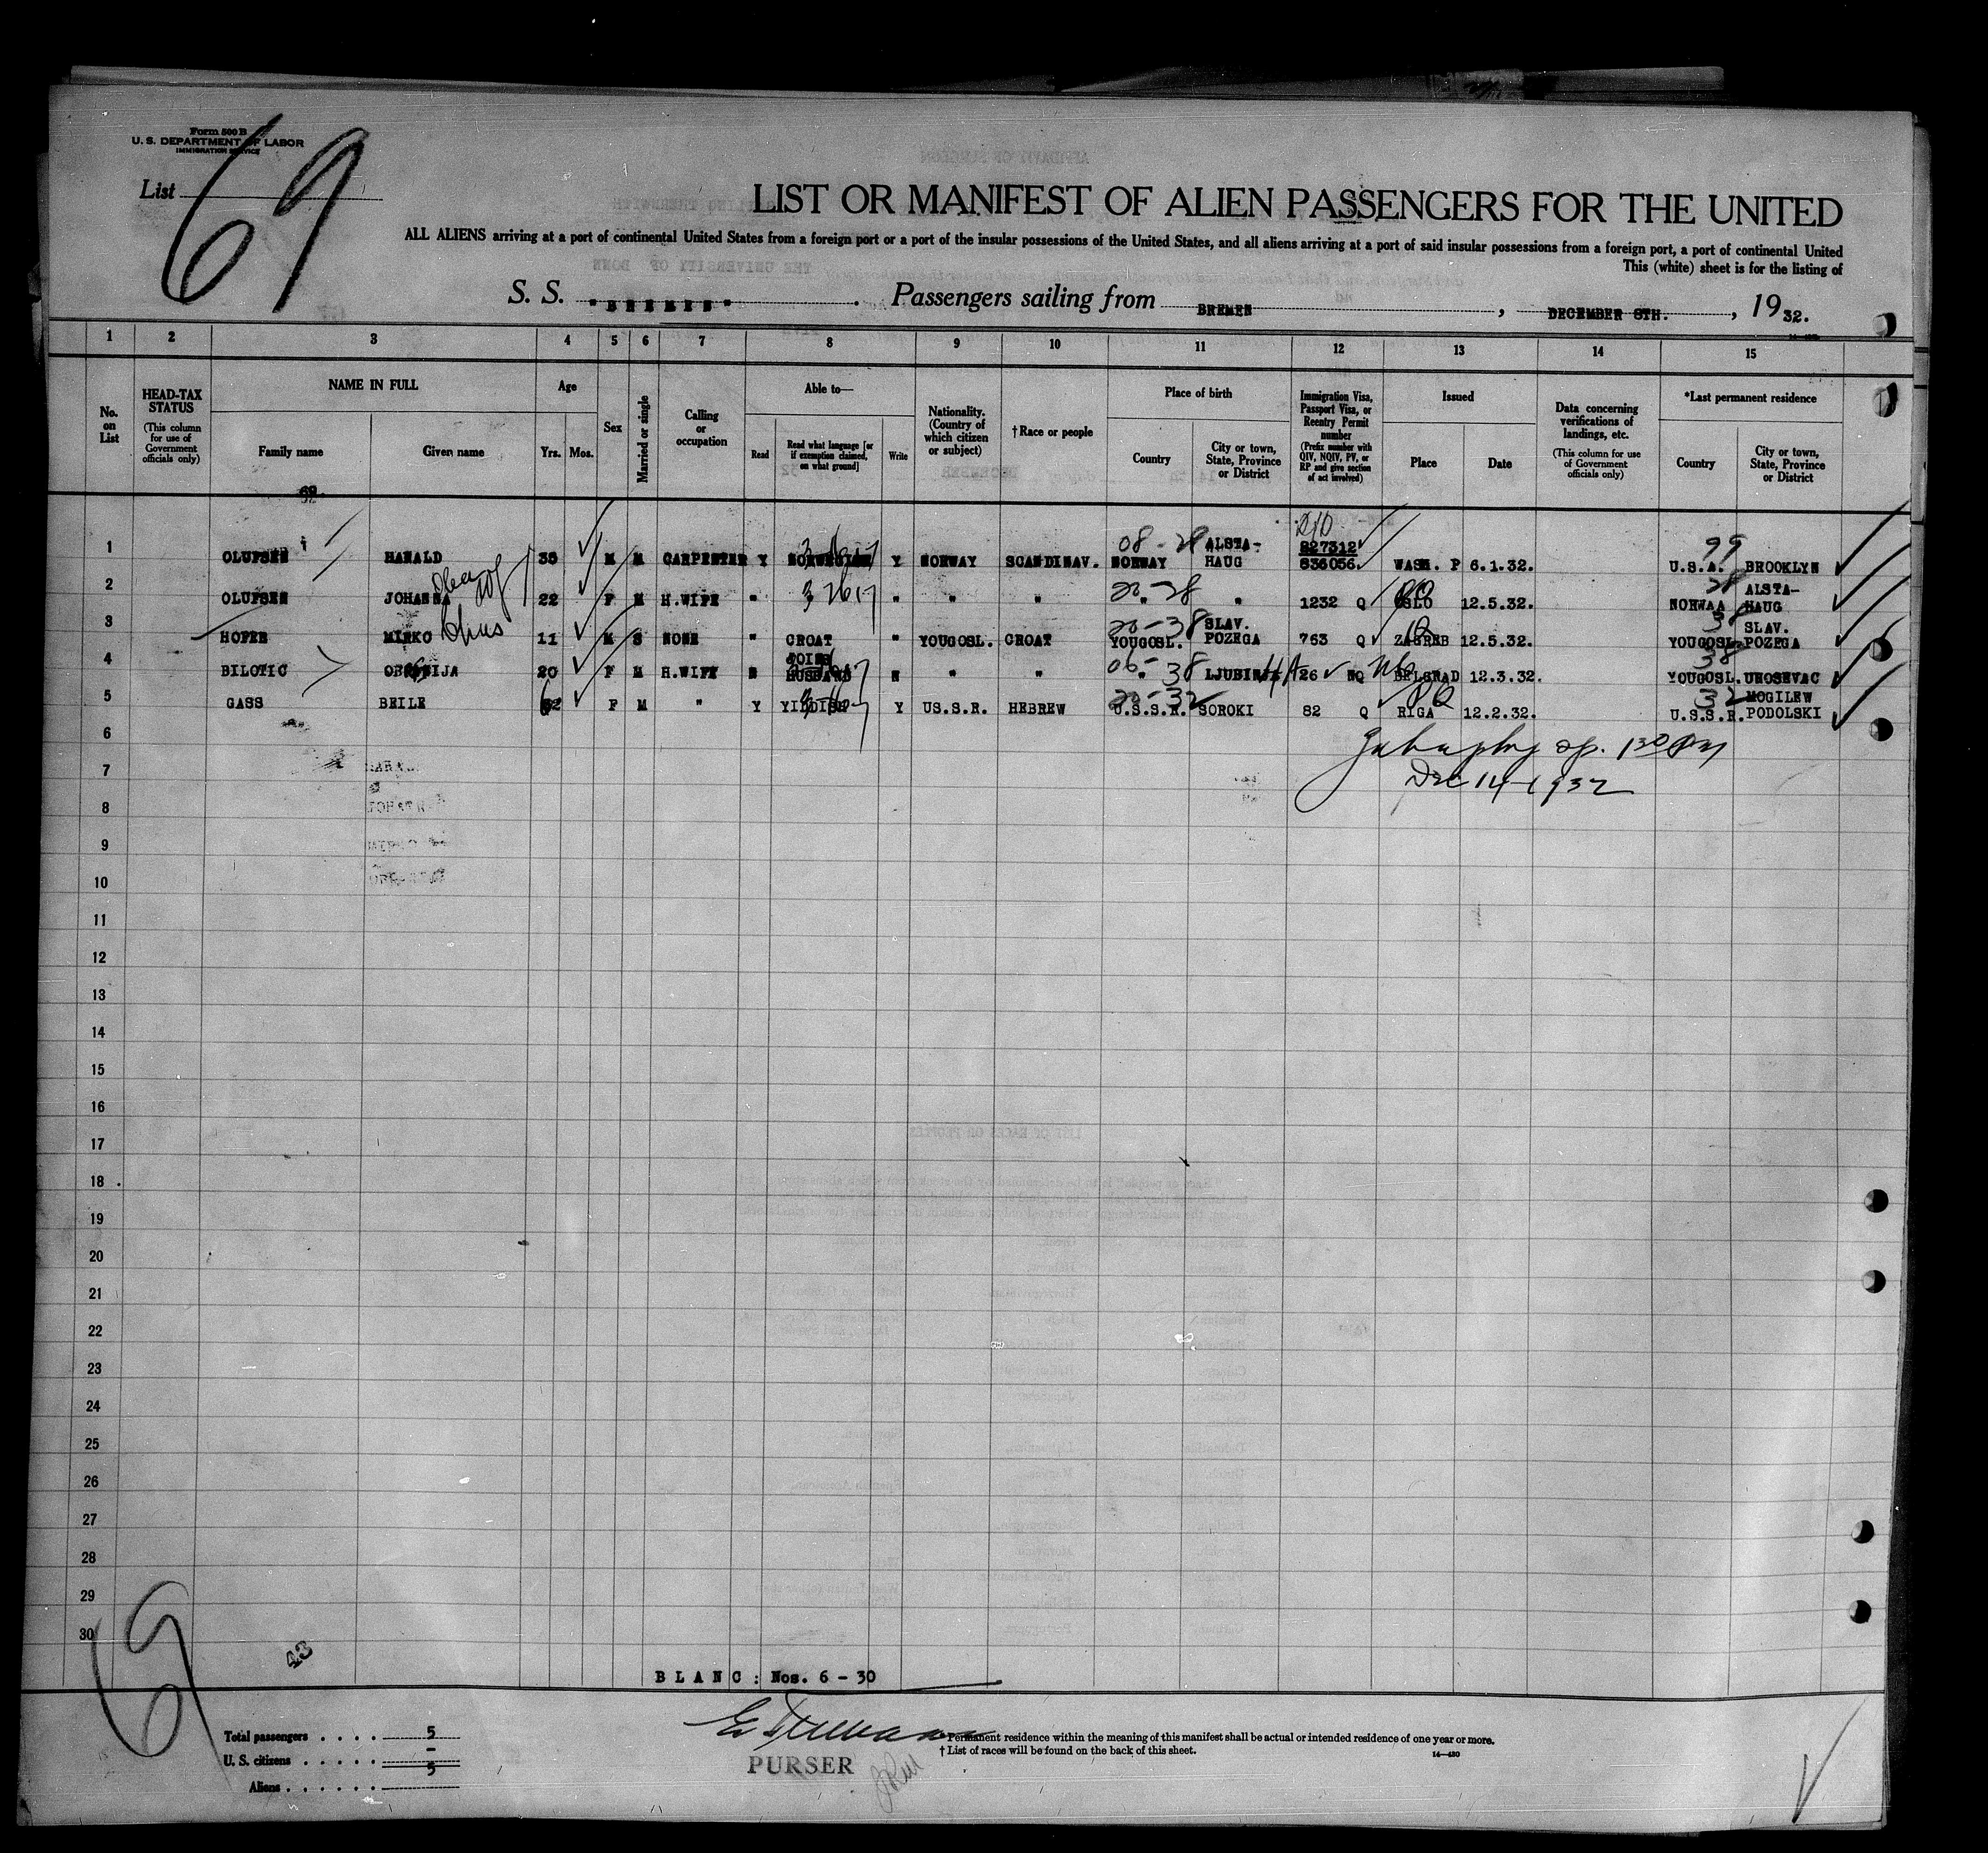 Form 500 B
U. S. DEPARTMENT OF LABOR
IMMIGRATION SERVICE
List 69
LIST OR MANIFEST OF ALIEN PASSENGERS FOR THE UNITED
ALL ALIENS arriving at a port of continental United States from a foreign port or a port of the insular possessions of the United States, and all aliens arriving at a port of said insular possessions from a foreign port, a port of continental United
This (white) sheet is for the listing of
S. S. "BREMEN" . Passengers sailing from BREMEN , DECEMBER 8TH. , 19 32.
1 2 3 4 5 6 7 8 9 10 11 12 13 14 15
No. on List
HEAD-TAX STATUS
(This column for use of Government officials only)
NAME IN FULL
Family name
Given name
Age
Yrs. Mos.
Sex
Married or single
Calling or occupation
Able to—
Read
Read what language [or if exemption claimed, on what ground]
Write
Nationality. (Country of which citizen or subject)
†Race or people
Place of birth
Country
City or town, State, Province or District
Immigration Visa, Passport Visa, or Reentry Permit number
(Prefix number with QIV, NQIV, PV, or RP and give section of act involved)
Issued
Place
Date
Data concerning verifications of landings, etc.
(This column for use of Government officials only)
*Last permanent residence
Country
City or town, State, Province or District
69
1 OLUFSEN HARALD 35 M M CARPENTER Y NORWEGIAN Y NORWAY SCANDINAV. 08-28 NORWAY ALSTA-HAUG 827312 836056 WASH. P 6.1.32. 99 U.S.A. BROOKLYN
2 OLUFSEN JOHANNA 22 F M H.WIFE " " " " " 20-28 " " 1232 Q OSLO 12.5.32. 28 NORWAA ALSTA-HAUG
3 HOFER MIRKO 11 M S NONE " CROAT " YOUGOSL. CROAT 20-38 YOUGOSL. SLAV. POZEGA 763 Q ZAGREB 12.5.32. 38 YOUGOSL. SLAV. POZEGA
4 BILOTIC 20 F M H.WIFE N JOINS HUSBAND N " " 06-38 " 26 NQ BELGRAD 12.3.32. 38 YOUGOSL. UROSEVAC
5 GASS BEILE 62 F M " Y YIDDISH Y US.S.R. HEBREW 20-32 U.S.S.R. SOROKI 82 Q RIGA 12.2.32. 32 U.S.S.R. MOGILEW PODOLSKI
6
Dec 14-1932
7
8
9
10
11
12
13
14
15
16
17
18
19
20
21
22
23
24
25
26
27
28
29
30
69
43
BLANC: Nos. 6 - 30
Total passengers . . . . 5
U. S. citizens . . . . . -
Aliens . . . . . . 5
PURSER
*Permanent residence within the meaning of this manifest shall be actual or intended residence of one year or more.
† List of races will be found on the back of this sheet.
14—430